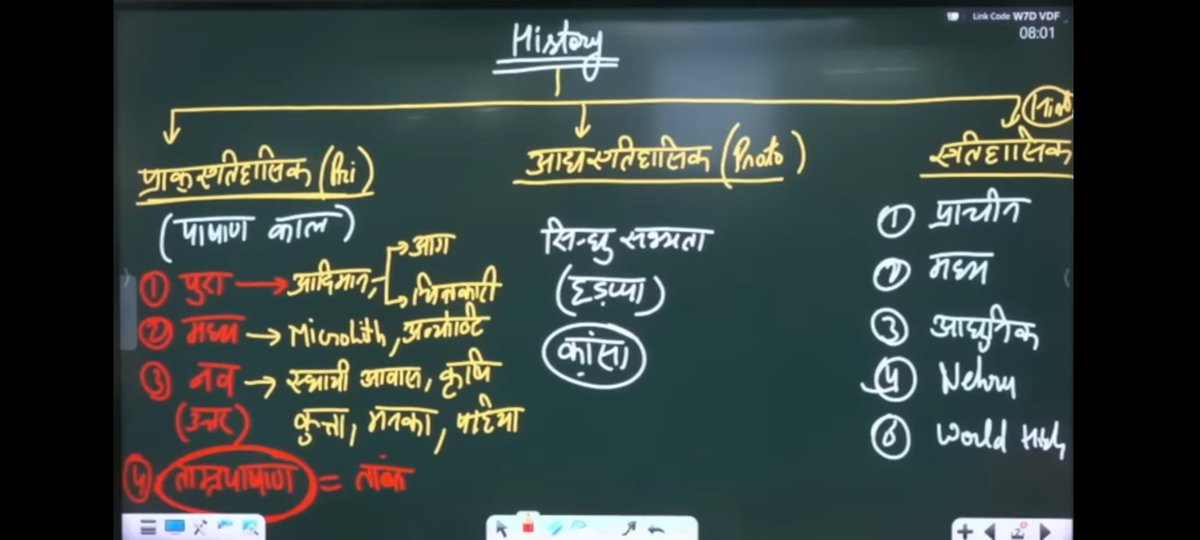 Link Code W7D VDF
08:01
History
प्राक् ऐतिहासिक (Pri)
(पाषाण काल)
① पुरा → आदिमानव → आग
→ चित्रकारी
② मध्य → Microlith, अन्त्येष्टि
③ नव → स्थायी आवास, कृषि
(उत्तर) कुत्ता, मटका, पहिया
④ ताम्रपाषाण = तांबा
आद्य ऐतिहासिक (Proto)
सिन्धु सभ्यता
(हड़प्पा)
कांसा
ऐतिहासिक
① प्राचीन
② मध्य
③ आधुनिक
④ Nehru
⑥ World